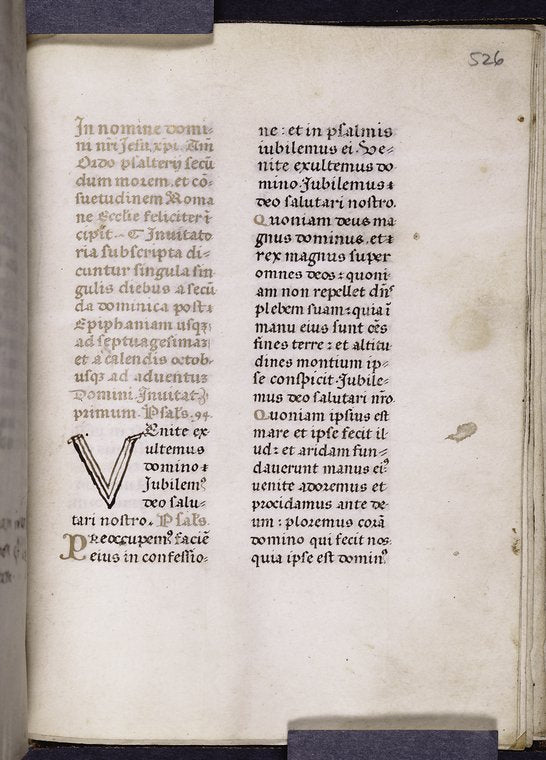 526
In nomine domi-
ni nr̄i Jesu xp̄i. Am̄
Ordo psalterij secū
dum morem. et cō-
suetudinem Roma
ne Ecclīe feliciter ī
cipit. Inuitato
ria subscripta di-
cuntur singula sin
gulis diebus a secū
da dominica post
Epiphaniam usqꝫ
ad septuagesimaꝫ
et a calendis octob.
usqꝫ ad aduentuꝫ
Domini. Inuitatꝫ
primum. Psalꝰ. 94.
Venite ex
ultemus
domino :
Jubilemꝰ
deo salu-
tari nostro. Psalꝰ.
Preoccupemꝰ faciē
eius in confessio-
ne : et in psalmis
iubilemus ei. Ve-
nite exultemus do
mino. Jubilemus :
deo salutari nostro.
Quoniam deus ma
gnus dominus. et :
rex magnus super
omnes deos : quoni
am non repellet dn̄s
plebem suam : quia ī
manu eius sunt oēs
fines terre : et altitu
dines montium ip-
se conspicit. Jubile-
mus deo salutari nr̄o.
Quoniam ipsius est
mare et ipse fecit il-
ud : et aridam fun-
dauerunt manus eiꝰ
uenite adoremus et
procidamus ante de-
um : ploremus corā
domino qui fecit nos.
quia ipse est dominꝰ